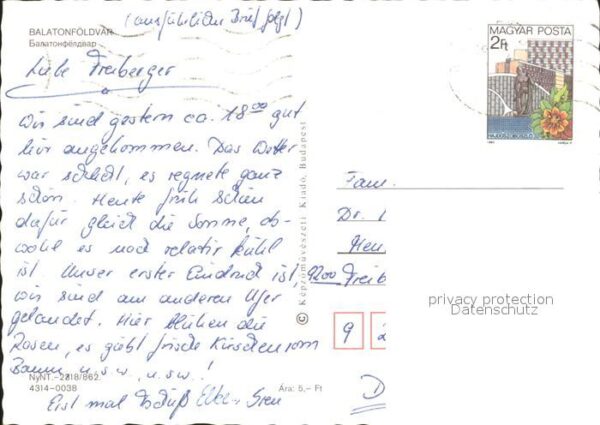 (ausführlicher Brief folgt)
BALATONFÖLDVÁR
Балатонфёлдвар
Liebe Freiberger
wir sind gestern ca. 18⁰⁰ gut
hier angekommen. Das Wetter
war schlecht, es regnete ganz
schön. Heute früh schien
dafür gleich die Sonne, ob-
wohl es noch relativ kühl
ist. Unser erster Eindruck ist,
wir sind am anderen Ufer
gelandet. Hier blühen die
Rosen, es gibt frische Kirschen vom
Baum, u.s.w., u.s.w.!
NyNT.-2218/862.
4314-0038
Ára: 5,- Ft
Erst mal Tschüß
© Képzőművészeti Kiadó, Budapest
MAGYAR POSTA
2Ft
HAJDÚSZOBOSZLÓ
Fam.
Dr.
9200 Freib
9 2
D
privacy protection
Datenschutz